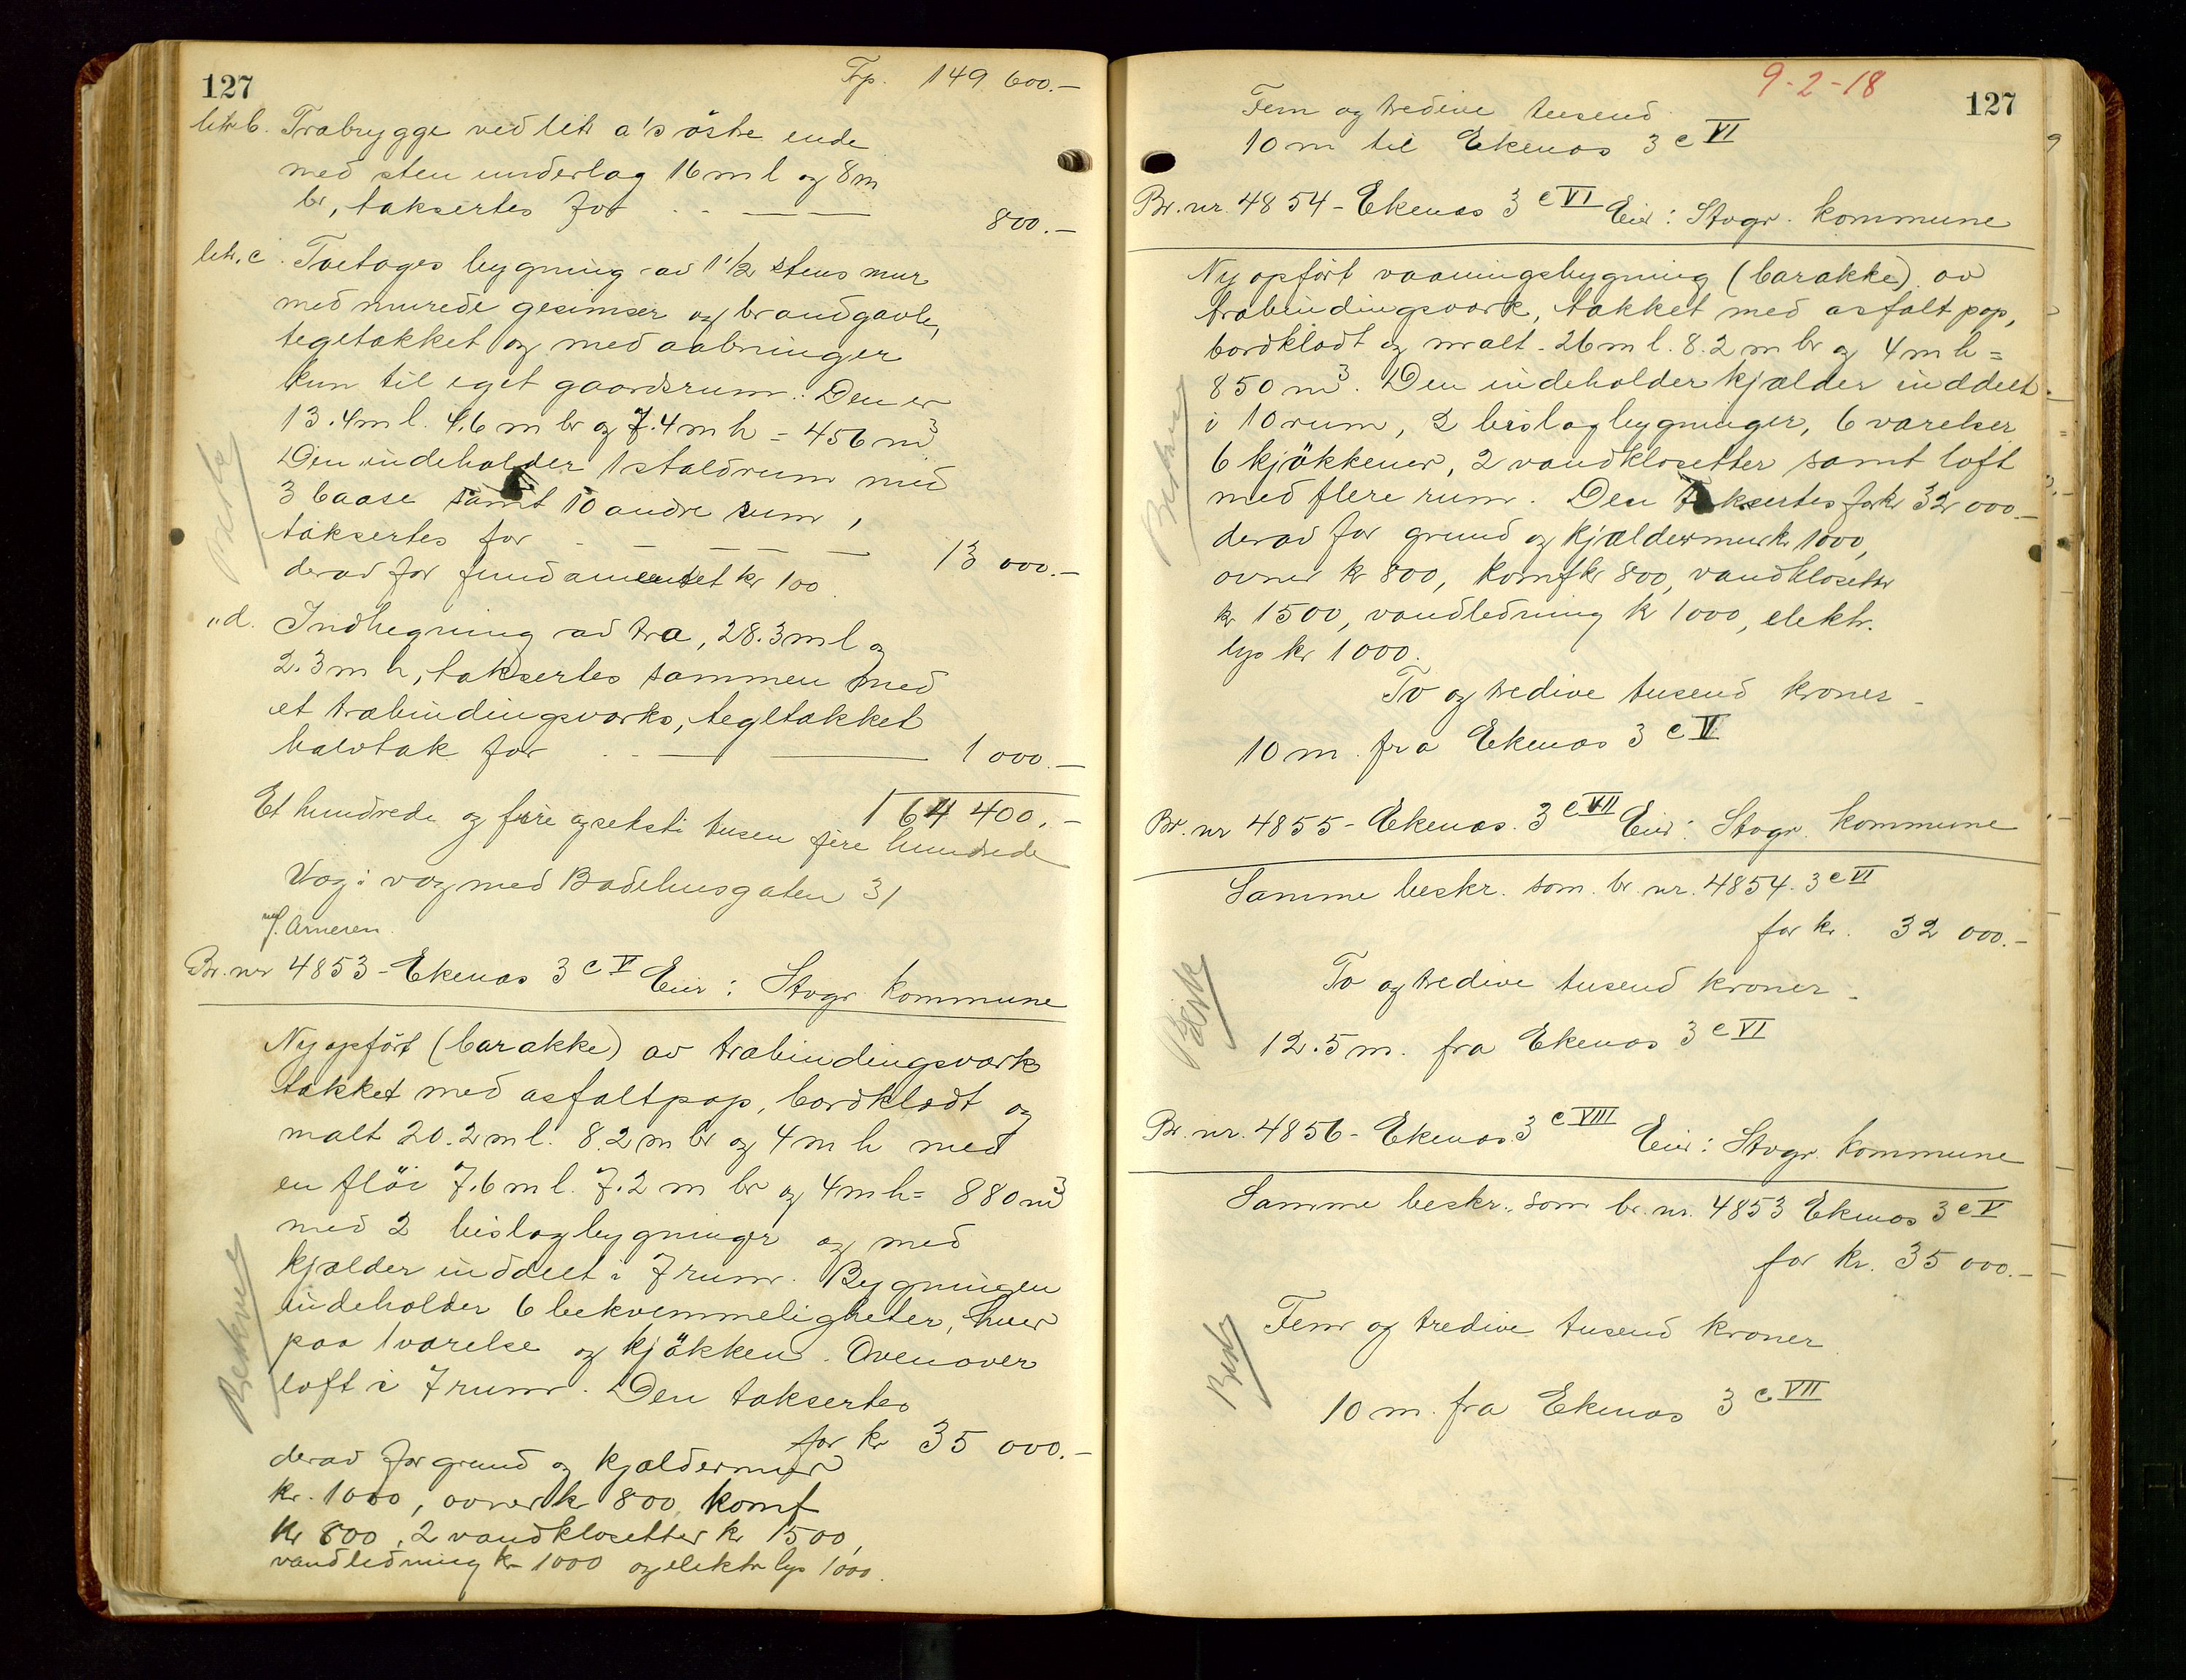 127
Trp. 149 600.-
litr b. Træbrygge ved litr a's østre ende
med sten underlag 16 m l og 8 m
br, taksertes for - - — — 800.-
litr. c. Toetages bygning av 1 1/2 stens mur
med murede gesimser og brandgavle,
tegltækket og med aabninger
kun til eget gaardsrum. Den er
13.4 m l. 4.6 m br og 7.4 m h = 456 m³
Den indeholder 1 staldrum med
3 baase samt 10 andre rum,
taksertes for - — — — 13 000.-
derav for fundamentet kr 100.
" d. Indhegning av træ, 28.3 m l og
2.3 m h, taksertes sammen med
et træbindingsverks, tegltækket
halvtak for - — — 1 000.-
164 400.-
Et hundrede og fire og seksti tusen fire hundrede
Væg i væg med Badehusgaten 31
Arnesen.
Br. nr 4853 - Ekenæs 3 c V Eier: Stvgr kommune
Nyopført (barakke) av træbindingsverk
tækket med asfaltpap, bordklædt og
malt 20.2 m l. 8.2 m br og 4 m h med
en fløi 7.6 m l. 7.2 m br og 4 m h = 880 m³
med 2 bislagbygninger og med
kjælder inddelt i 7 rum. Bygningen
indeholder 6 bekvemmeligheter, hver
paa 1 værelse og kjøkken. Ovenover
loft i 7 rum. Den taksertes
for kr 35 000.-
derav for grund og kjældermur
kr. 1000, ovner kr 800, komf
kr 800, 2 vandklosetter kr 1500,
vandledning kr 1000 og elektr lys 1000.
9-2-18
127
Fem og tredive tusend
10 m til Ekenæs 3 c VI
Br. nr. 4854 - Ekenæs 3 c VI Eier: Stvgr. kommune
Ny opført vaaningsbygning (barakke) av
træbindingsverk, tækket med asfalt pap,
bordklædt og malt. 26 m l. 8.2 m br og 4 m h =
850 m³. Den indeholder kjælder inddelt
i 10 rum, 2 bislagbygninger, 6 værelser
6 kjøkkener, 2 vandklosetter samt loft
med flere rum. Den taksertes for kr 32 000.-
derav for grund og kjældermur kr 1000,
ovner kr 800, komf kr 800, vandklosetter
kr 1500, vandledning kr 1000, elektr.
lys kr 1000.
To og tredive tusend kroner -
10 m. fra Ekenæs 3 c V
Br. nr 4855 - Ekenæs. 3 c VII Eier: Stvgr. kommune
Samme beskr. som br. nr. 4854. 3 c VI
for kr. 32 000.-
To og tredive tusend kroner -
12.5 m. fra Ekenæs 3 c VI
Br. nr. 4856 - Ekenæs. 3 c VIII Eier: Stvgr. kommune
Samme beskr. som br. nr. 4853 Ekenæs 3 c V
for kr. 35 000.-
Fem og tredive tusend kroner
10 m. fra Ekenæs 3 c VII